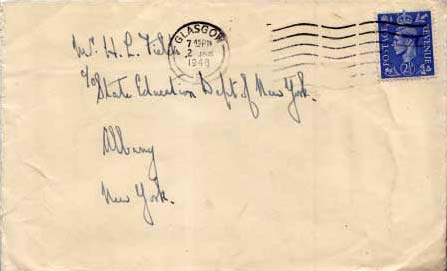 GLASGOW
7 15 PM
2 JAN
1948
POSTAGE
REVENUE
2½D
Mr. H. L. Field
c/o
State Education Dept of New York.
Albany
New York.